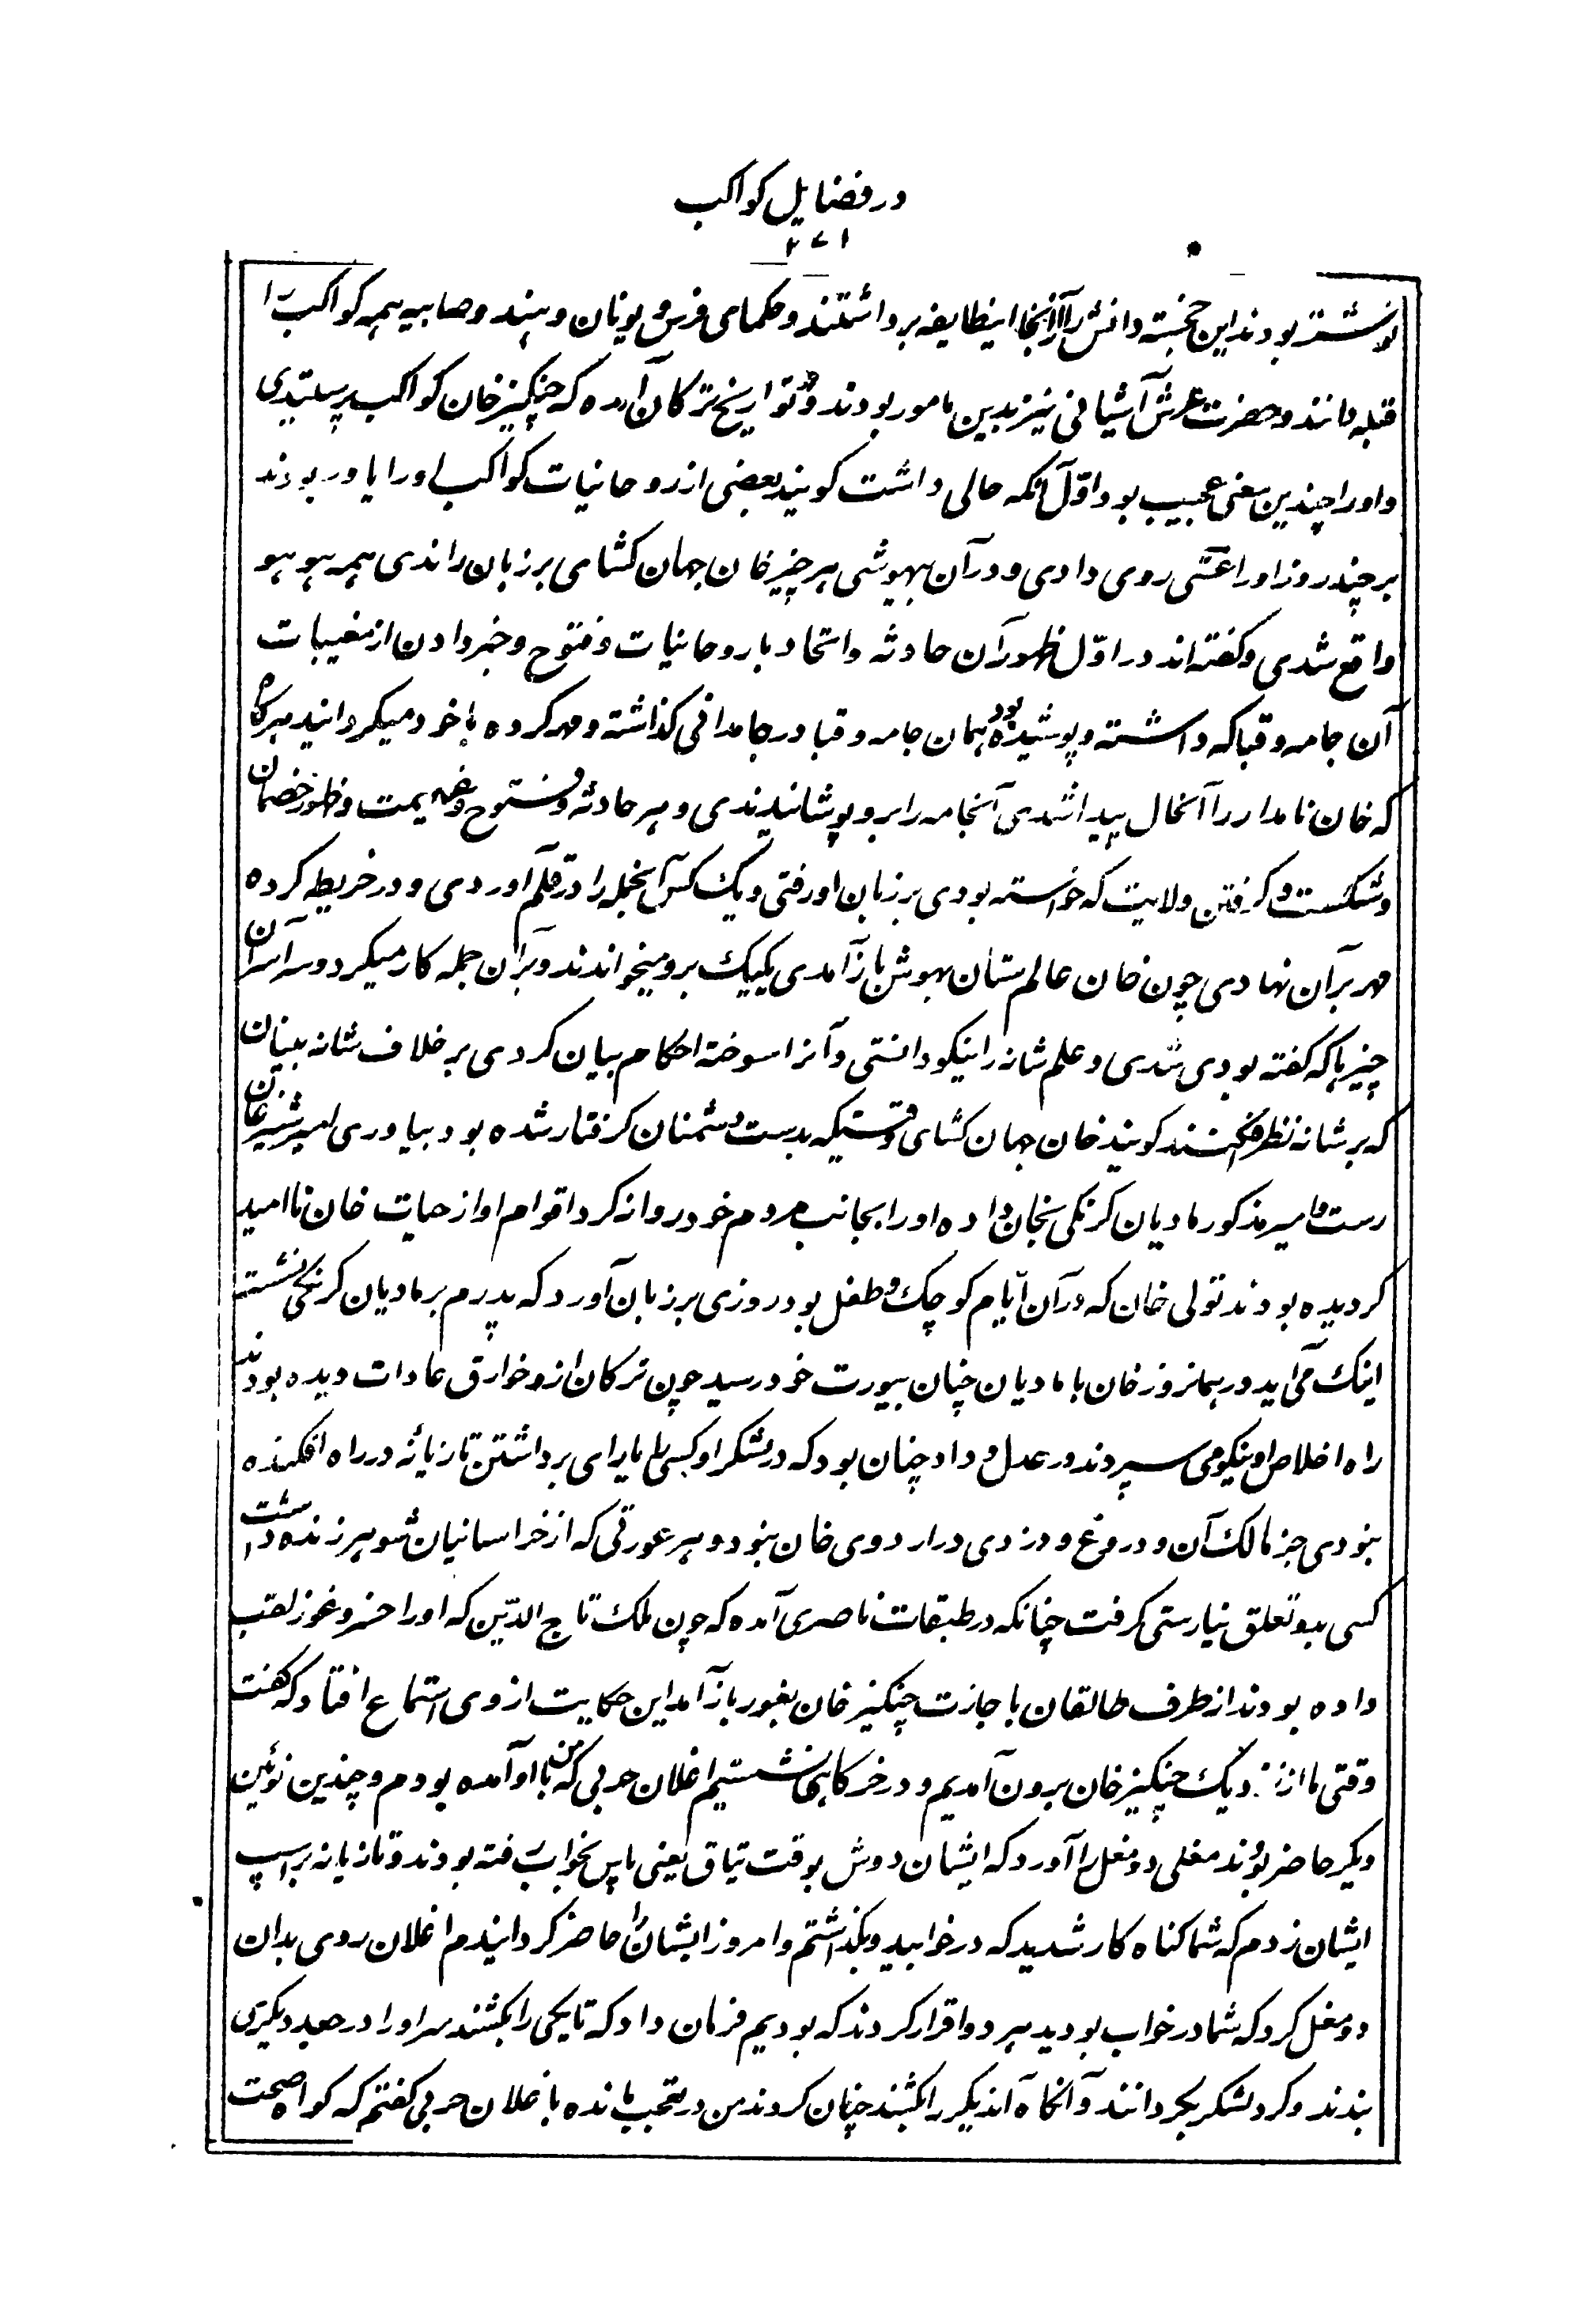 در فضایل کواکب
۲۷۱
نوشته بودند این خجسته دانش را از آنجا اینطایفه برداشتند و حکمای فرس و یونان و هند و صابیه همه کواکب را
قبله دانند و حضرت عرش آشیانی نیز بدین مامور بودند و در تواریخ ترکان آمده که چنگیز خان کواکب پرستیدی
و او را چندین معنی عجیب بود اوّل آنکه حالی داشت کویند بعضی از روحانیات کواکب او را یاور بودند
بر چند روز او را غشی روی دادی و در آن بیهوشی هر چیز خان جهان کشای بر زبان راندی همه هو بهو
واقع شدی و کفته اند در اوّل ظهور آن حادثه و اتحاد با روحانیات و فتوح و خبر دادن از مغیبات
آن جامه و قبا که داشته و پوشیده بود همان جامه و قبا در جامدانی کذاشته و مهر کرده با خود میکردانید هرکاه
که خان نامدار را آنحال پیدا شدی آنجامه را برو پوشانیدندی و هر حادثه و فتوح و هزیمت و ظهور خصمان
و شکست و کرفتن ولایت که خواسته بودی بر زبان او رفتی و یک کس آنجمله را در قلم آوردی و در خریطه کرده
مهر بر آن نهادی چون خان عالم ستان بهوش باز آمدی یکیک برو میخواندند و بر آن جمله کار میکرد و سراسر آن
چیزها که کفته بودی شدی و علم شانه را نیکو دانستی و آنرا سوخته احکام بیان کردی بر خلاف شانه بینان
که بر شانه نظر فکنند کویند خان جهان کشای وقتیکه بدست دشمنان کرفتار شده بود بیاوری امیر شیرغان
رست و امیر مذکور مادیان کرنکی بخان داده او را بجانب مردم خود روانه کرد اقوام او از حیات خان ناامید
کردیده بودند تولی خان که در آن ایّام کوچک و طفل بود روزی بر زبان آورد که پدرم بر مادیان کرنکی نشسته
اینک می آید در همانروز خان با مادیان چنان بیورت خود رسید چون ترکان ازو خوارق عادات دیده بودند
راه اخلاص او نیکو می سپردند و در عدل و داد چنان بود که در لشکر او کسی را یارای برداشتن تازیانه در راه افکنده
نبودی جز مالک آن و دروغ و دزدی در اردوی خان نبود و هر عورتی که از خراسانیان شوهر زنده داشت
کسی بدو تعلق نیارستی کرفت چنانکه در طبقات ناصری آمده که چون ملک تاج الدّین که او را خسرو غور لقب
داده بودند از طرف طالقان باجازت چنکیز خان بغور باز آمد این حکایت از وی استماع افتاد که کفت
وقتی ما از نزدیک چنکیز خان برون آمدیم و در خرکاهی نشستیم اغلان حربی که من با او آمده بودم و چندین نوئین
دیکر حاضر بودند مغلی دو مغل را آورد که ایشان دوش بوقت تیاق یعنی پاس بخواب رفته بودند و تازیانه بر اسپ
ایشان زدم که شما کناه کار شدید که در خوابید و بکذاشتم و امروز ایشان را حاضر کردانیدم اغلان روی بدان
دو مغل کرد که شما در خواب بودید هر دو اقرار کردند که بودیم فرمان داد که تا یکی را بکشند سر او را در جعد دیکری
بندند و کرد لشکر بکردانند و آنکاه آندیکر را بکشند چنان کردند من در تعجب مانده باغلان حربی کفتم که کواه و حجت